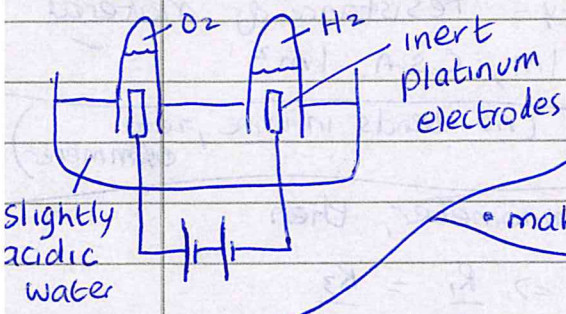 O2
H2
inert
platinum
electrodes
slightly
acidic
water
• mal
=> R1 = R3